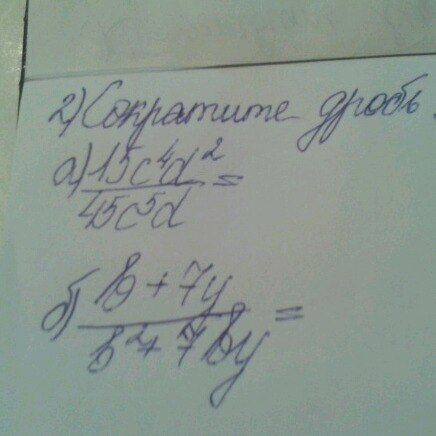 2) Сократите дробь.
а) 15c⁴d² / 45c⁵d =
б) в + 7y / в² + 7вy =